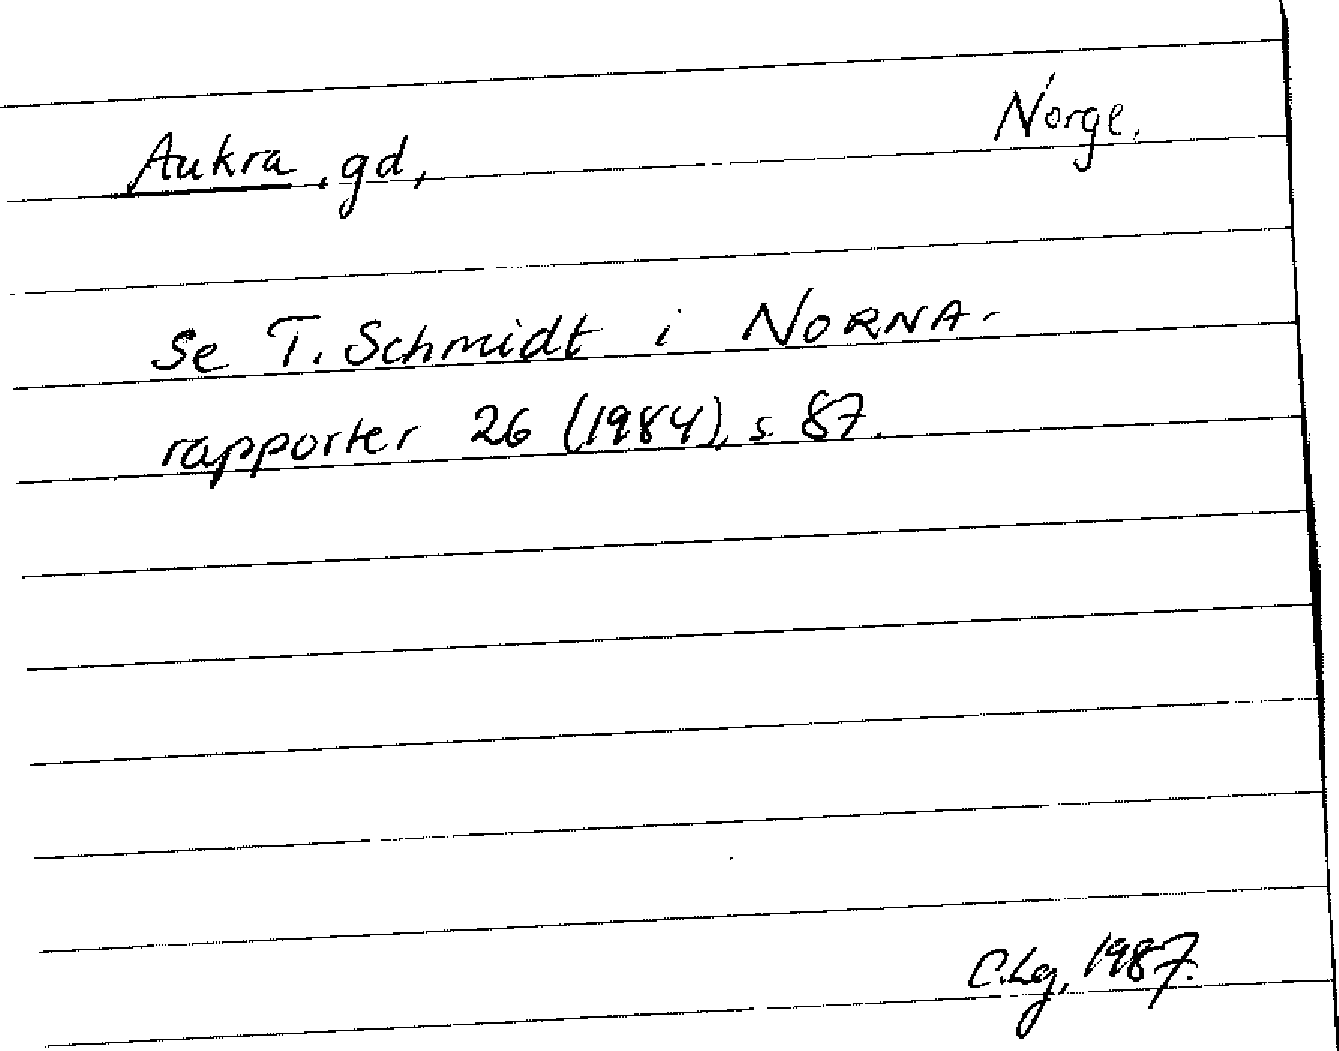 Aukra, gd, Norge.
Se T. Schmidt i NORNA-
rapporter 26 (1984), s. 87.
C.Lg, 1987.